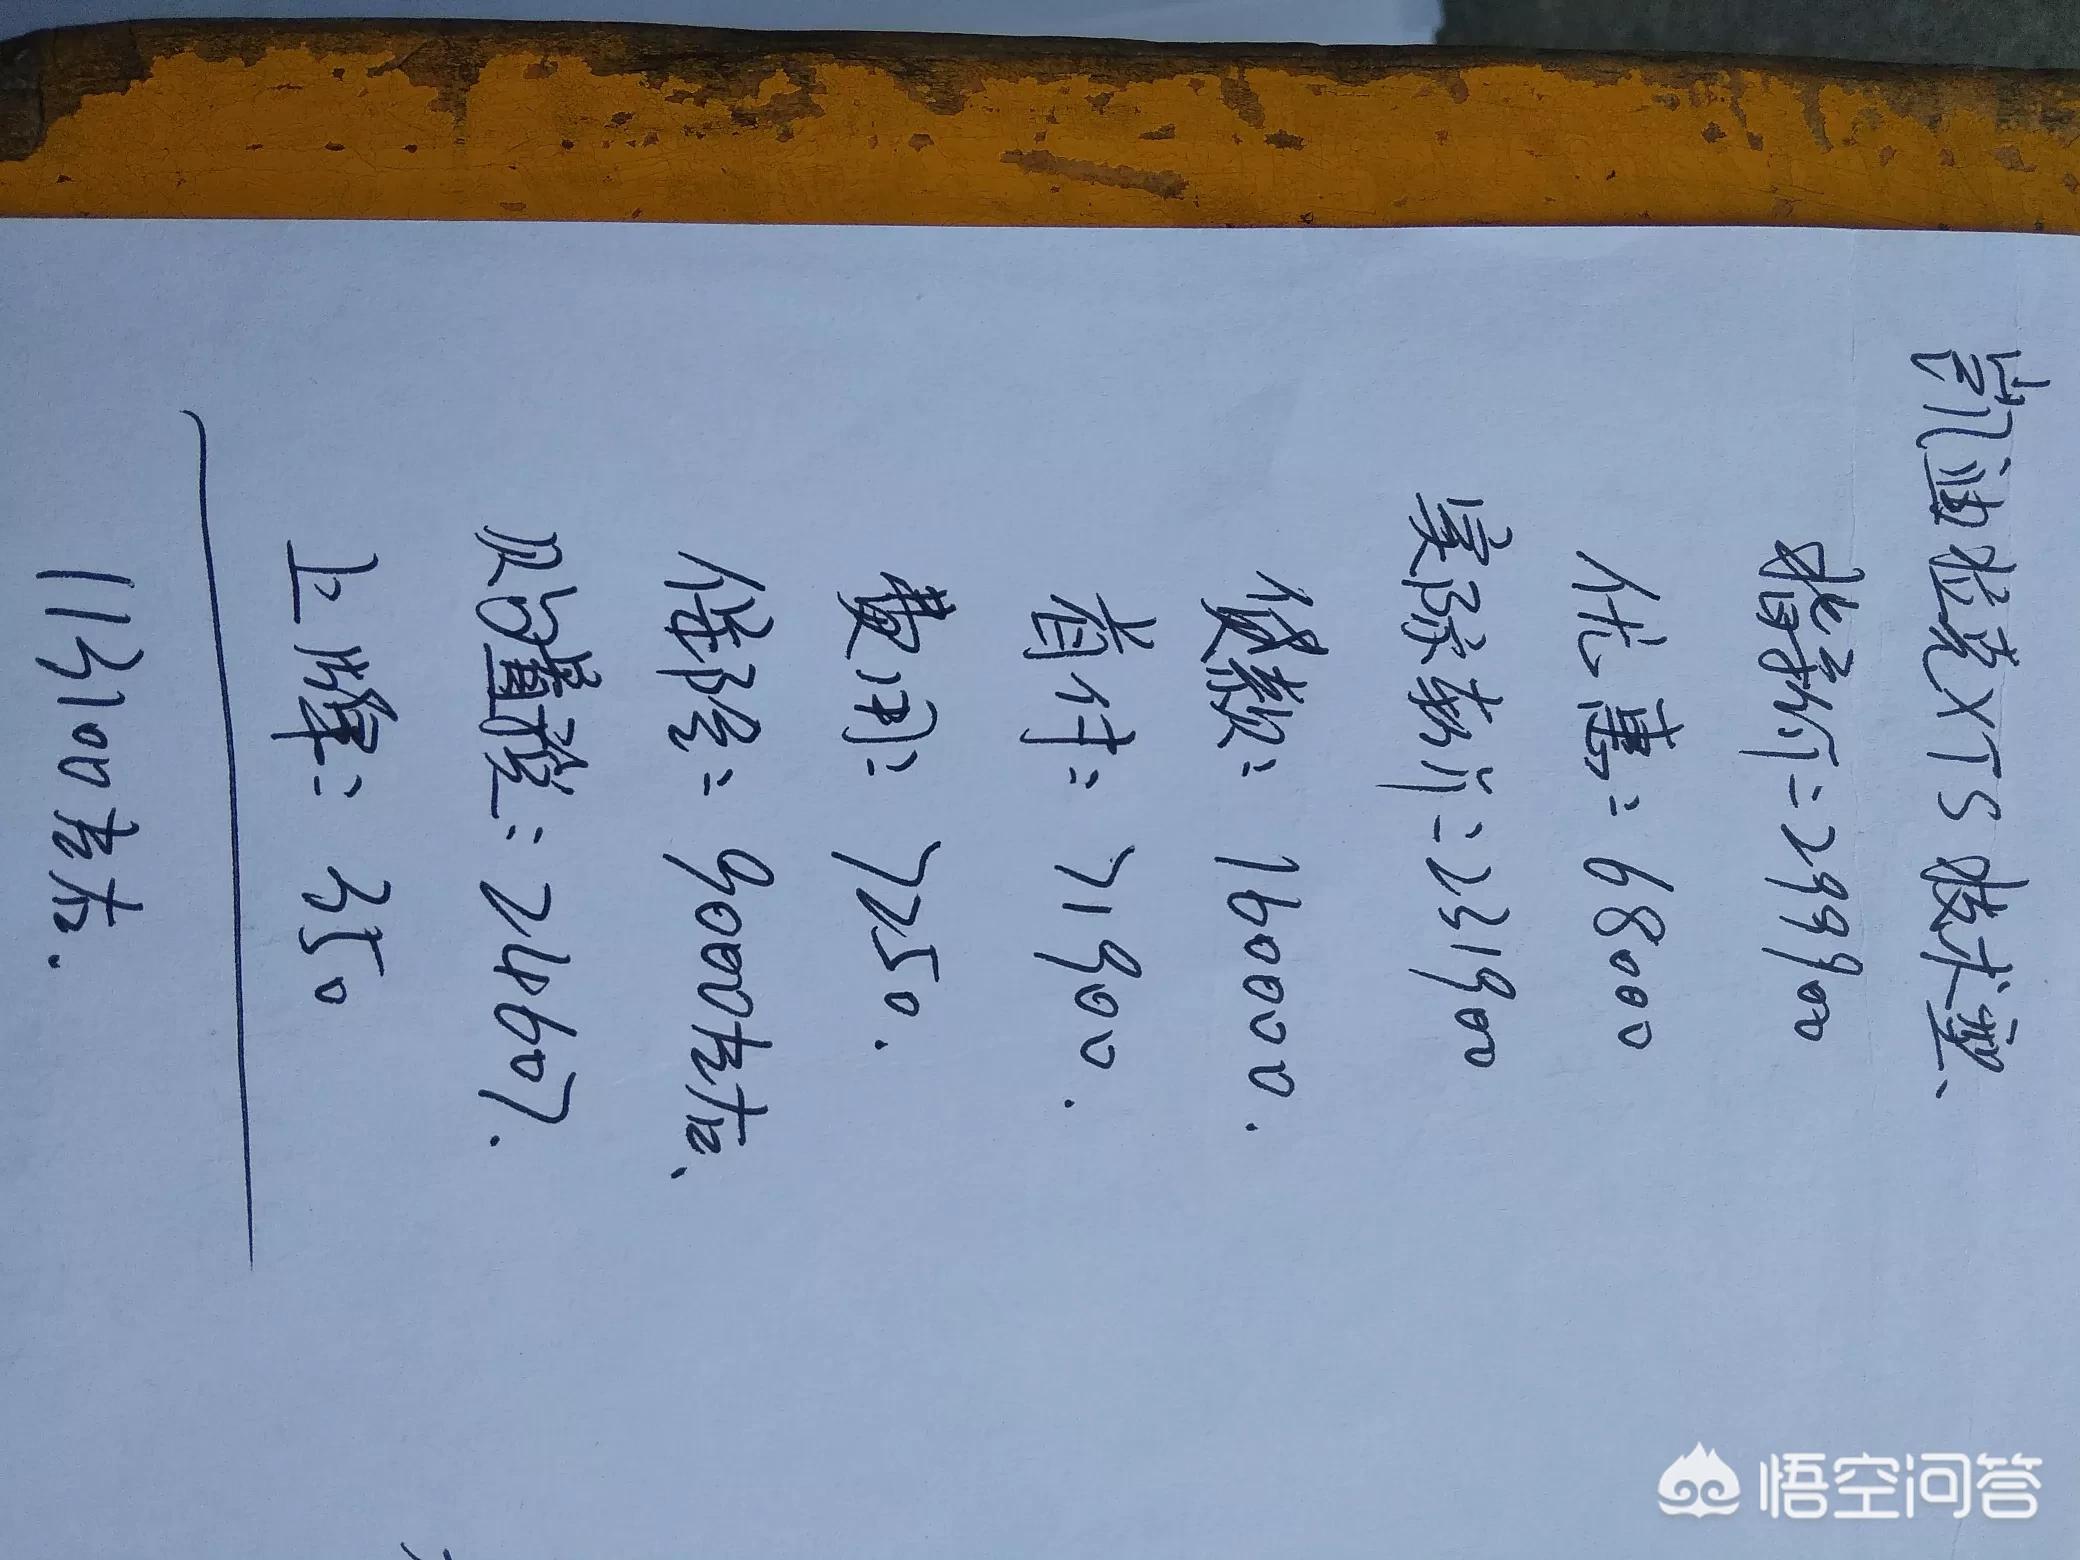 凯迪拉克XTS 技术型、
指导价：299900
优惠：68000
实际裁价：231900
贷款：160000.
首付：71900.
费用：7250.
保险：9000左右、
购置税：24607.
上牌：350
113100左右.
悟空问答